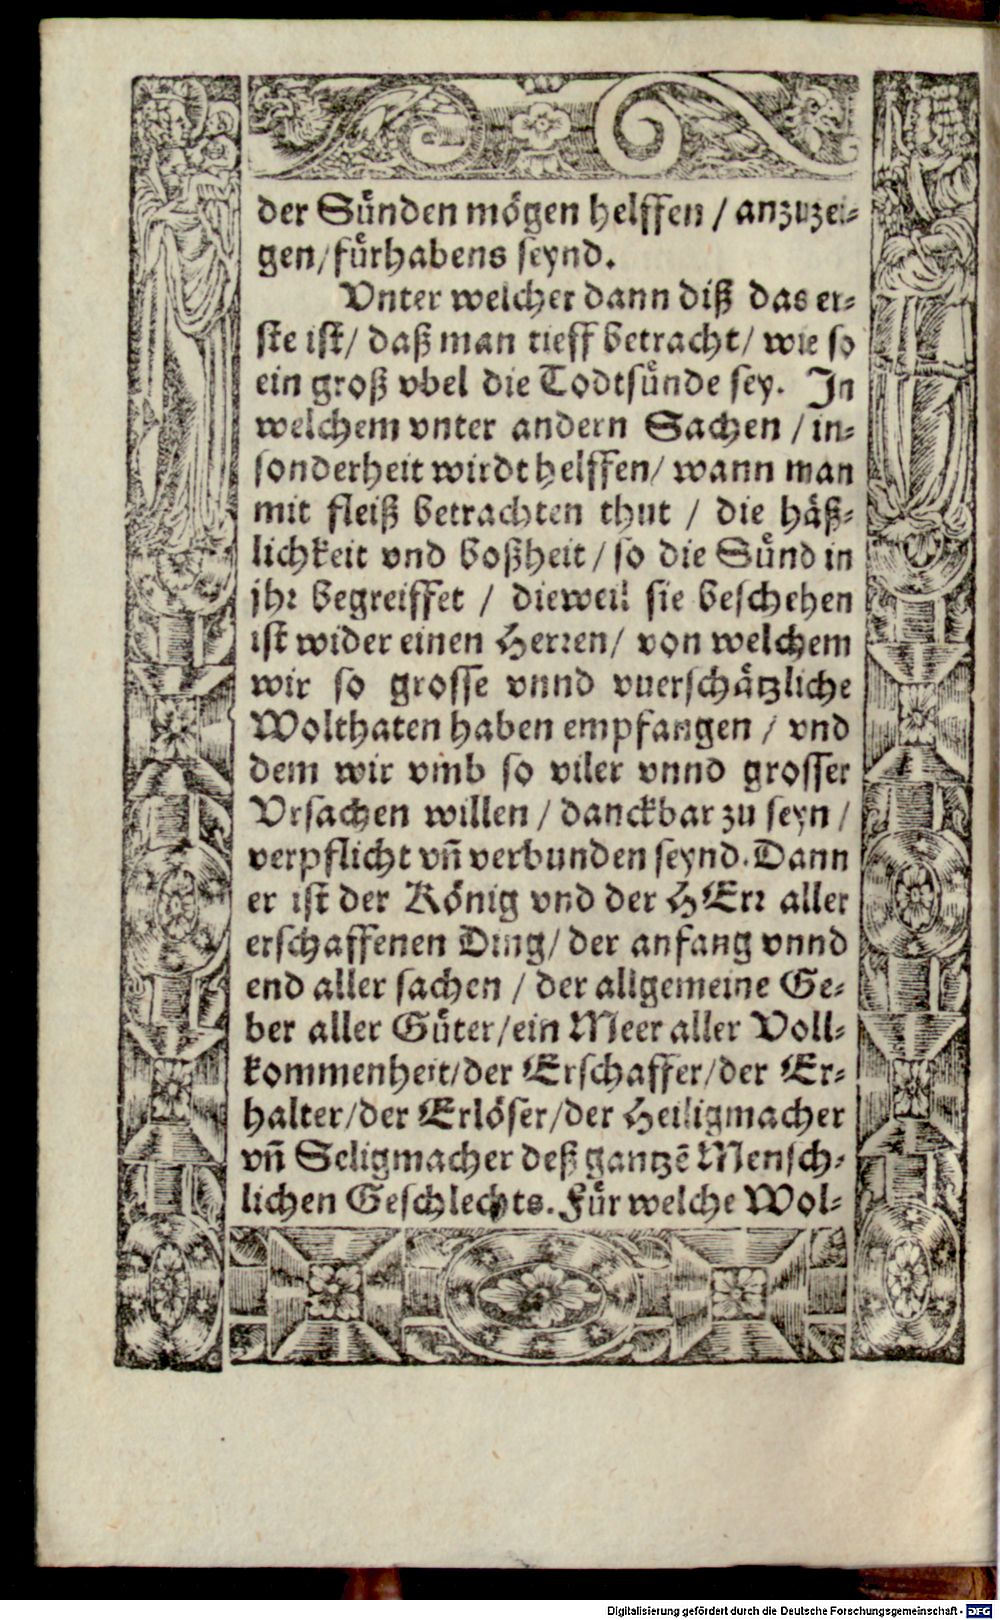 der Suͤnden moͤgen helffen / anzuzei-
gen/ fuͤrhabens seynd.
Vnter welcher dann diß das er-
ste ist/ daß man tieff betracht/ wie so
ein groß vbel die Todtsuͤnde sey. In
welchem vnter andern Sachen / in-
sonderheit wirdt helffen/ wann man
mit fleiß betrachten thut / die haͤß-
lichkeit vnd boßheit / so die Suͤnd in
jhr begreiffet / dieweil sie beschehen
ist wider einen Herren/ von welchem
wir so grosse vnnd vnerschaͤtzliche
Wolthaten haben empfangen / vnd
dem wir vmb so viler vnnd grosser
Vrsachen willen / danckbar zu seyn /
verpflicht vn̄ verbunden seynd. Dann
er ist der Koͤnig vnd der HErr aller
erschaffenen Ding/ der anfang vnnd
end aller sachen / der allgemeine Ge-
ber aller Guͤter/ ein Meer aller Voll-
kommenheit/ der Erschaffer/ der Er-
halter/ der Erloͤser/ der Heiligmacher
vn̄ Seligmacher deß gantzē Mensch-
lichen Geschlechts. Fuͤr welche Wol-
Digitalisierung gefördert durch die Deutsche Forschungsgemeinschaft - DFG